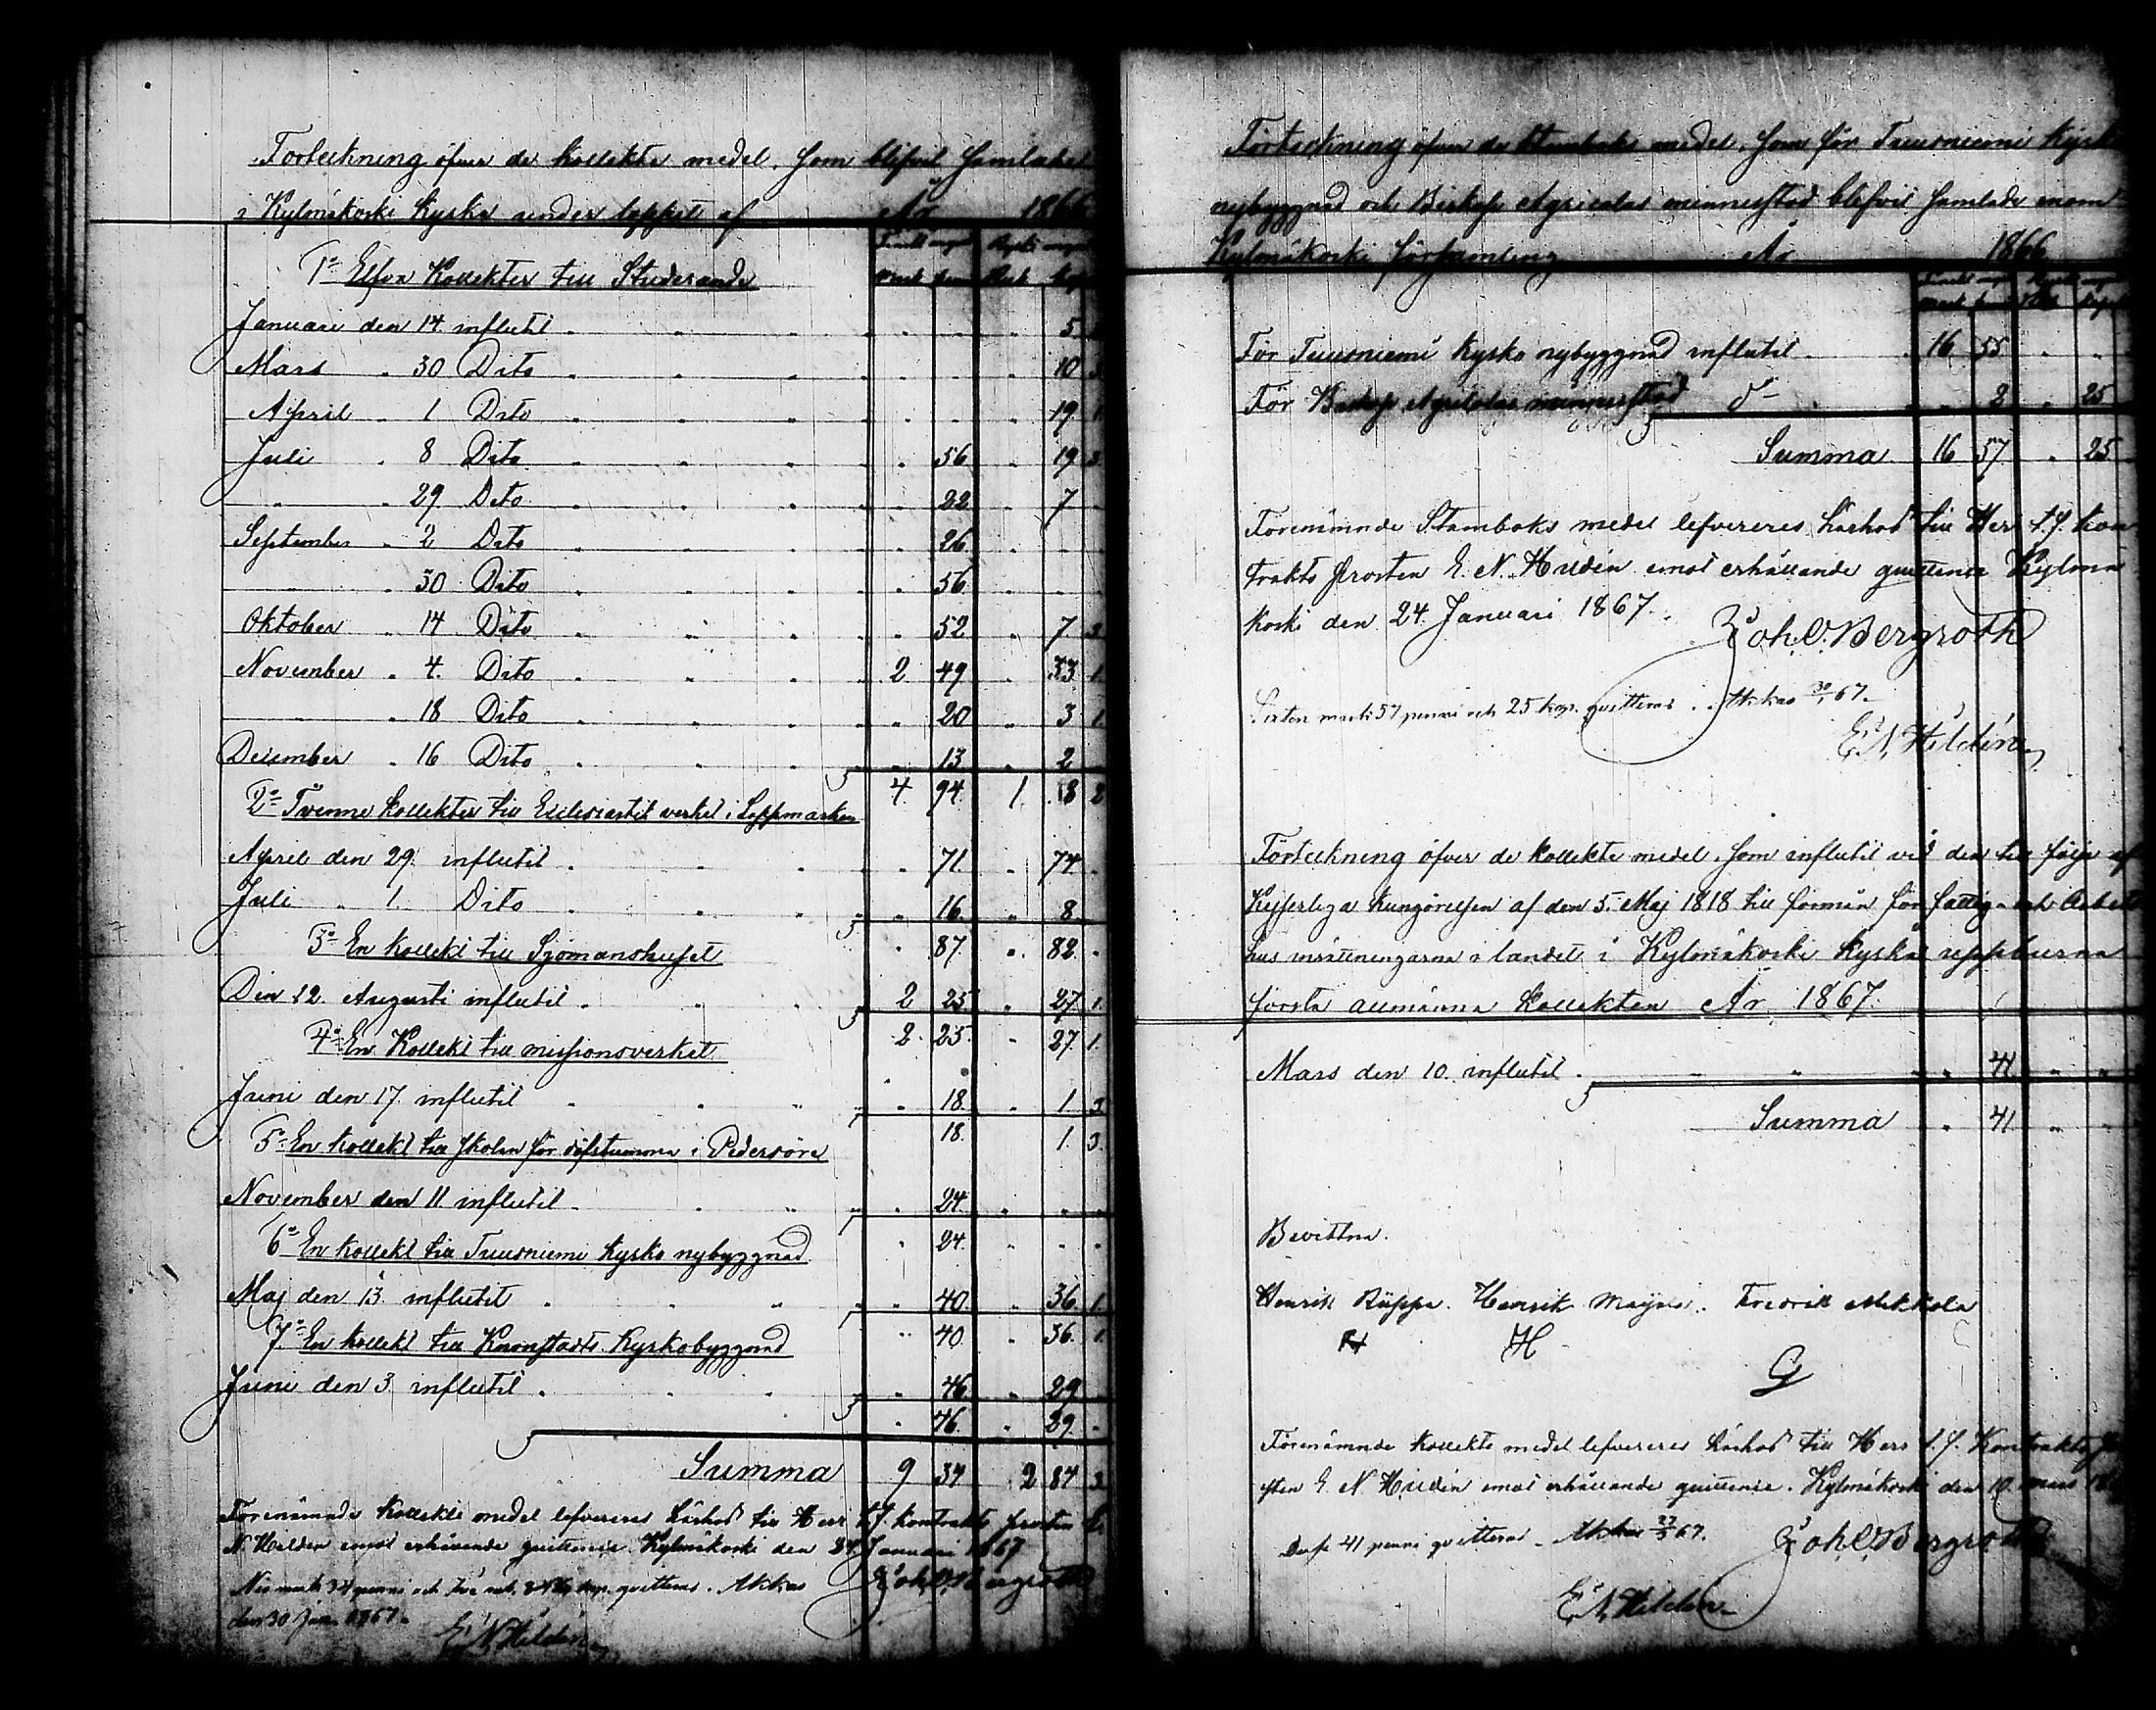 Förteckning öfver de kollekte medel, som blifvit samlade
i Kylmäkoski kyrka under loppet af År 1866
Finskt mynt Ryskt mynt
1o Elfva Kollekter till Studerande Mark penni Rub. kop.
Januari den 14 influtit 5
Mars " 30 Dito 10 3
April " 1 Dito 19 1
Juli " 8 Dito 56 19 3
" " 29 Dito 22 7
September " 2 Dito 26
" " 30 Dito 56
Oktober " 14 Dito 52 7 3
November " 4. Dito 2 49 33 1
" " 18 Dito 20 3 1
December " 16 Dito 13 2
4 94 1 8 2
2o Tvenne kollekter till Ecclesiastik verket i Lappmarken
April den 29. influtit 71. 74
Juli " 1. Dito 16 8
3o En kollekt till Sjömanshuset 87. 82
Den 12. Augusti influtit 2 25 27 1
4o En Kollekt till missionsverket 2. 25. 27. 1.
Juni den 17. influtit 18. 1 3
5o En kollekt till skolan för döfstumma i Pedersöre 18. 1. 3.
November den 11. influtit 24.
6o En kollekt till Tuusniemi kyrko nybyggnad 24.
Maj den 13. influtit 40. 36 1
7o En kollekt till Kronstadts Kyrkobyggnad 40 36. 1
Juni den 3 influtit 46. 29
46. 29.
Summa 9 34 2 84 3
Förenämnde kollekte medel lefvereres härhos till Herr t.f. kontrakts prosten E.
N Hildén emot erhållande quittence. Kylmäkoski den 24. Januari 1867
Joh. O. Bergroth
Nio mark 34 penni och två rub. 84 3/4 kop. qvitteras. Akkas
den 30 Jan. 1867.
E. N. Hildén
Förteckning öfver de Stamboks medel, som för Tuusniemi kyrko
nybyggnad och Biskop Agricolas minnesstod blifvit samlade inom
Kylmäkoski församling År 1866
Finskt mynt Ryskt mynt
Mark penni Rub. kop.
För Tuusniemi kyrko nybyggnad influtit 16 55
För Biskop Agricolas minnesstod do 2 25
Summa 16 57 25
Förenämnde Stamboks medel lefvereres härhos till Herr t.f. kon
trakts prosten E. N. Hildén emot erhållande quittence Kylmä
koski den 24. Januari 1867.
Joh. O. Bergroth
Sexton mark 57 penni och 25 kop. qvitteras. Akkas 30/1 67.
E. N. Hildén
Förteckning öfver de kollekte medel, som influtit vid den till följe af
Kejserliga kungörelsen af den 5. Maj 1818 till förmån för fattig- och Arbets
hus inrättningarna i landet i Kylmäkoski kyrka uppburna
första allmänna kollekten År 1867.
Mars den 10. influtit 41
Summa 41
Bevittna.
Henrik Rüppa. Henrik Fredrik Mikkola
H G
Förenämnde kollekte medel lefvereres härhos till Herr t.f. Kontrakts pro
sten E. N Hildén emot erhållande quittence. Kylmäkoski den 10. mars 18
Joh. O. Bergroth
Dessa 41 penni qvitteras. Akkas 27/3 67.
E. N. Hildén